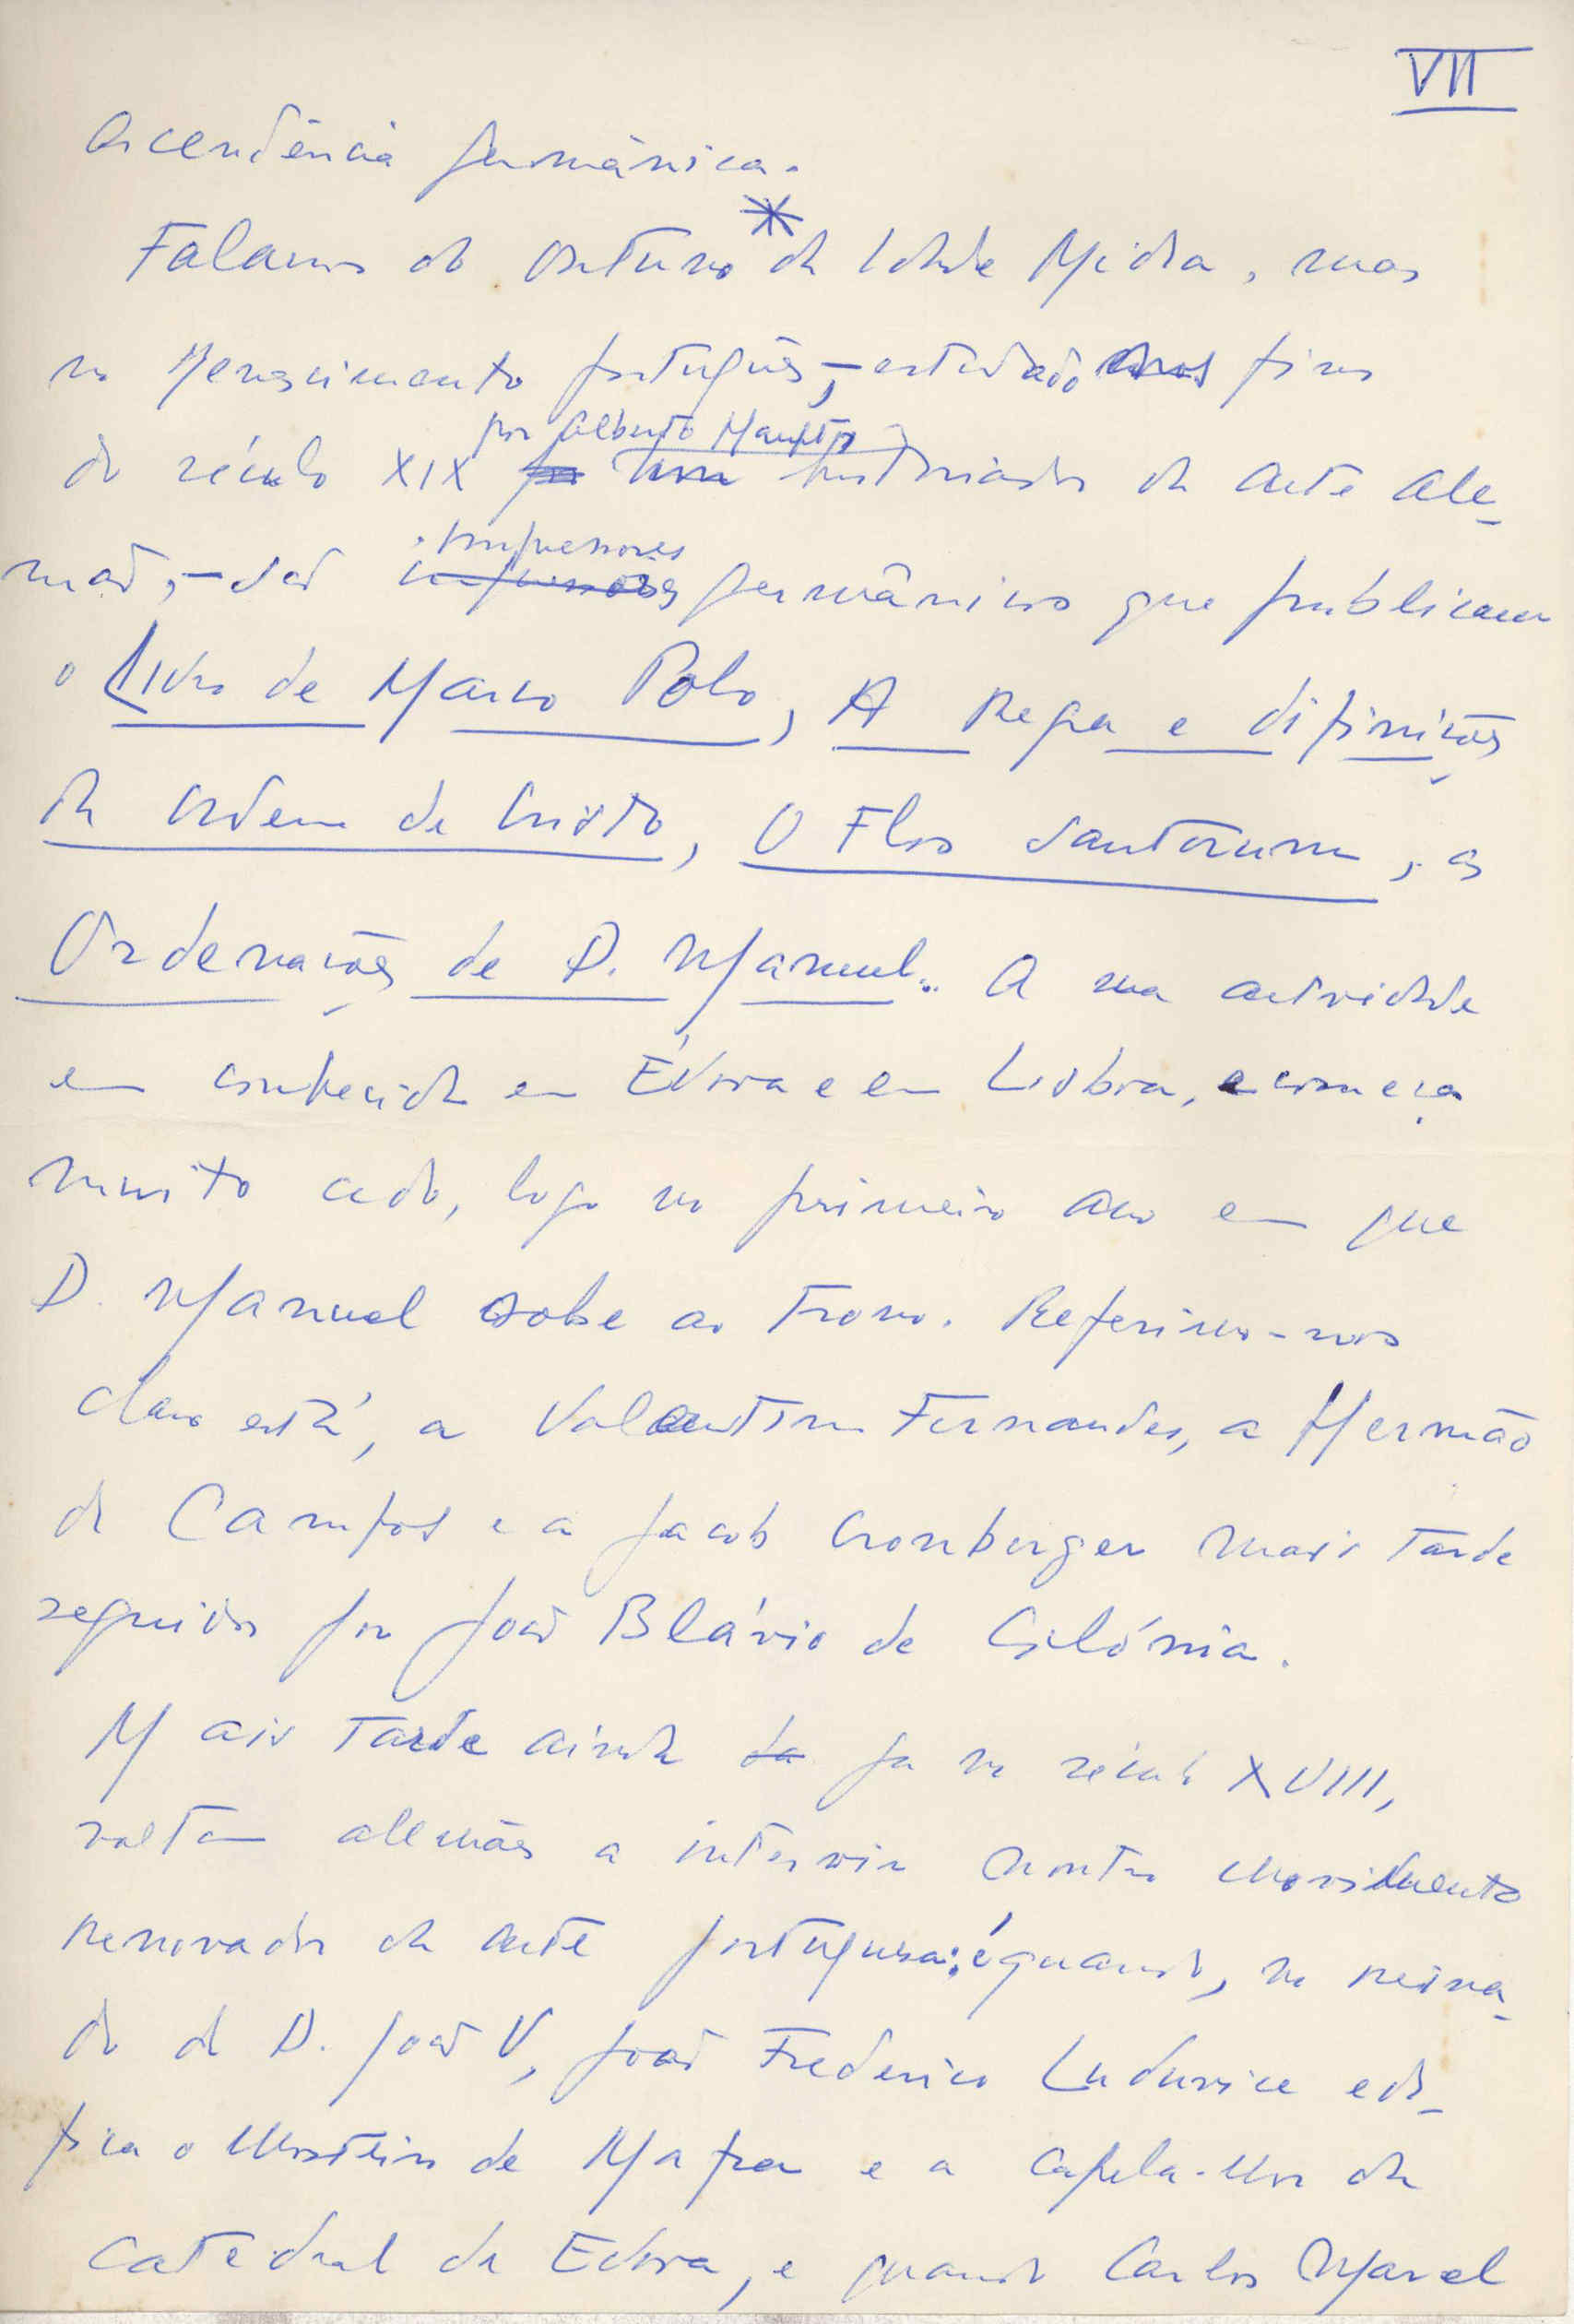 VII
ascendência germânica.
*
Falamos do Outono da Idade Média, mas
no Renascimento português, – estudado nos fins
por Alberto Haupt,
do século XIX historiador da arte ale-
impressores
mão, – são germânicos que publicam
o Livro de Marco Polo, A Regra e difinições
da Ordem de Cristo, O Flos Santorum, as
Ordenações de D. Manuel.. A sua actividade
é conhecida em Évora e em Lisboa, e começa
muito cedo, logo no primeiro ano em que
D. Manuel sobe ao Trono. Referimo-nos
claro está, a Valentim Fernandes, a Hermão
de Campos e a Jacob Cronberger mais tarde
seguidos por João Blávio de Colónia.
Mais tarde ainda já no século XVIII,
voltam alemães a intervir noutro movimento
renovador da arte portuguesa: é quando, no reina-
do de D. João V, João Frederico Ludovice edi-
fica o Mosteiro de Mafra e a capela-mor da
Catedral de Évora, e quando Carlos Mardel